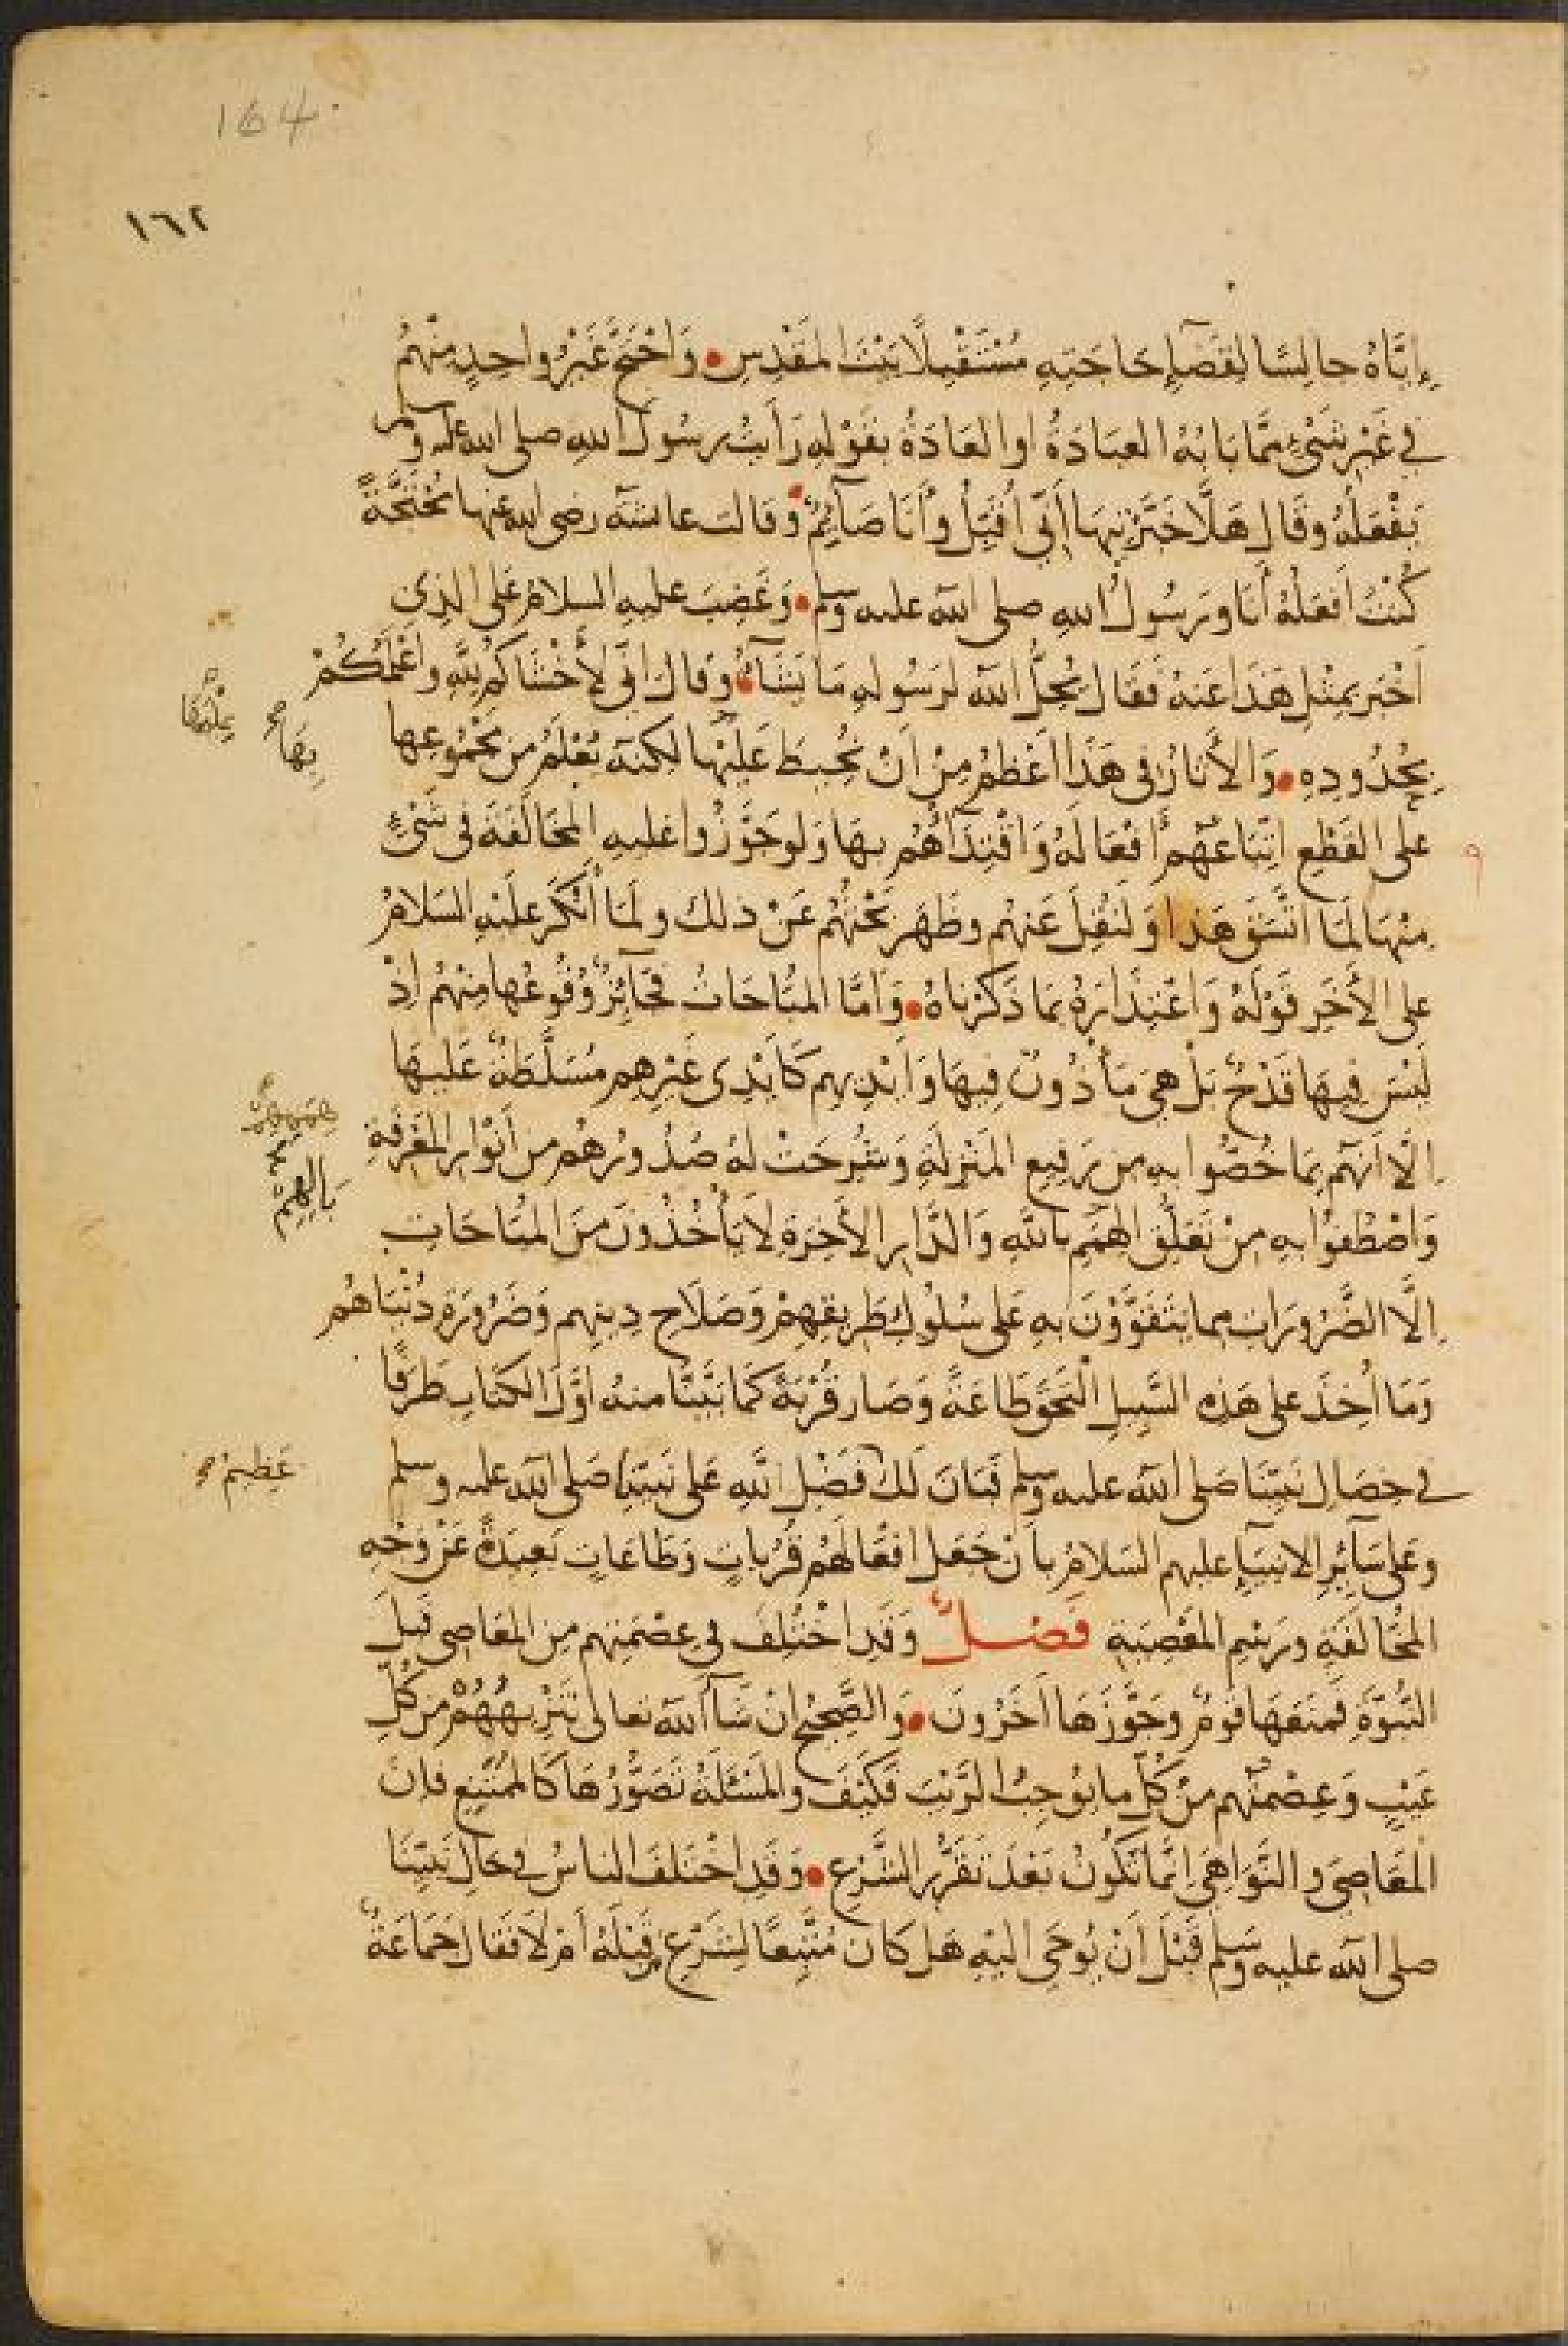 164
١٦٢
إِيَّاهُ جالِسًا لِقَضَآءِ حَاجَتِهِ مُسْتَقْبِلًا بَيْتَ المَقْدِسِ • وَاحْتَجَّ غَيْرُ واحِدٍ مِنْهُمْ
في غَيْرِ شَيْءٍ مِمَّا بَابُهُ العِبَادَةُ او العَادَةُ بقَوْلِهِ رَأَيْتُ رسُولَ اللهِ صلى الله عليه وسلم
يَفْعَلُهُ وقَالَ هَلَّا خَبَّرْتِيهَا أَنِّي أُقَبِّلُ وأَنَا صَآئِمٌ • وقالت عائشة رضى الله عنها مُحْتَجَّةً
كُنْتُ أَفعَلُهُ أنَا ورَسُولُ اللهِ صلى الله عليه وسلم • وَغَضِبَ عليهِ السلامُ عَلى الذِي
أخْبَرَ بِمِثْلِ هَذَا عَنهُ فَقَالَ يُحِلُّ الله لرَسُولِهِ مَا يَشَآءُ • وقالَ انّى لأَخْشَاكُمْ لِلّهِ واعْلَمُكُمْ
بِحُدُودِهِ • وَالأَثارُ فى هَذَا أَعْظَمُ مِنْ أنْ نُحِيطَ عَلَيْهَا لكنّهُ يُعْلَمُ مِن مَجْمُوعِها
على القَطْعِ اتِّبَاعُهُمْ أَفعَالَهُ وَاقْتِدَآؤُهُم بهَا وَلو جَوَّزُوا عَليهِ المُخَالَفَةَ فى شَيْءٍ
مِنْهَا لَمَا اتَّسَقَ هَذا وَلَنُقِلَ عَنهُم وظَهَرَ بَحْثُهُم عَنْ ذلكَ ولَمَا أَنْكَرَ عليْهِ السَلامُ
على الأَخَرِ قَوْلَهُ وَاعْتِذَارَهُ بمَا ذَكَرْنَاهُ • وَأمَّا المُبَاحَاتُ فَجَآئِزٌ وُقُوعُها مِنْهُم اذْ
لَيْسَ فِيهَا قَدْحٌ بَلْ هِيَ مَأذُونٌ فِيهَا وَأيْدِيهِم كَأيْدِى غَيْرِهِم مُسَلَّطَةٌ عَليهَا
إلّا أنهُم بِمَا خُصُّوا بِهِ مِن رَفِيعِ المَنْزِلَةِ وَشُرِحَتْ لهُ صُدُورُهُم مِن أَنْوَارِ المَعْرِفَةِ
وَاصْطُفُوا بهِ مِنْ تَعَلُّقِ الهِمَمِ باللهِ وَالدَّارِ الأخِرَةِ لاَ يَأْخُذُونَ مِنَ المُبَاحَاتِ
إلَّا الضَّرُورَاتِ مما يَتَقَوَّوْنَ بهِ عَلى سُلُوكِ طَرِيقِهِمْ وَصَلاَحِ دِينِهِم وَضَرُورَةِ دُنْيَاهُم
وَمَا أُخِذَ على هَذِهِ السَّبِيلِ الْتَحَقَ طَاعَةً وَصَارَ قُرْبَةً كَمَا بَيَّنَّا منهُ أَوَّلَ الكتَابِ طَرَفًا
في خِصَالِ نَبِيِّنَا صَلى الله عليه وسلم فَبَانَ لَكَ فَضْلُ اللهِ عَلى نَبِيِّنَا صَلى الله عليه وسلم
وعَلى سَآئِرِ الانبيَآءِ عليهم السَلامُ بأَنْ جَعَلَ افْعَالَهُمْ قُرُبَاتٍ وَطَاعَاتٍ بَعِيدَةً عَنْ وَجْهِ
المُخَالَفَةِ ورَسْمِ المَعْصِيَةِ فَصْلٌ وَقَدِ اخْتُلِفَ فى عِصْمَتِهِم مِنَ المَعَاصِى قَبلَ
النّبُوّةِ فَمَنَعَهَا قَوْمٌ وجَوَّزَهَا أخَرُونَ • وَالصَّحِيحُ انْ شَآءَ الله تعالى تَنْزِيهُهُمْ مِن كُلِّ
عَيْبٍ وَعِصْمَتُهُم مِنْ كُلِّ ما يُوجِبُ الرَّيْبَ فَكَيْفَ والمَسْئَلَةُ تَصَوُّرُهَا كَالمُمْتَنِعِ فإن
المَعَاصِىَ والنَّوَاهِىَ انَّمَا تَكُونُ بَعْدَ تَقَرُّرِ الشَّرْعِ • وَقَدِ اخْتَلَفَ الناسُ في حَالِ نَبِيِّنَا
صلى الله عليه وسلم قَبْلَ أَنْ يُوحَى اليْهِ هَل كَانَ مُتَّبِعًا لِشَرْعٍ قَبْلَهُ أمْ لاَ فَقَالَ جَمَاعَةٌ
بِهَا صح
عَظِيمٌ صح